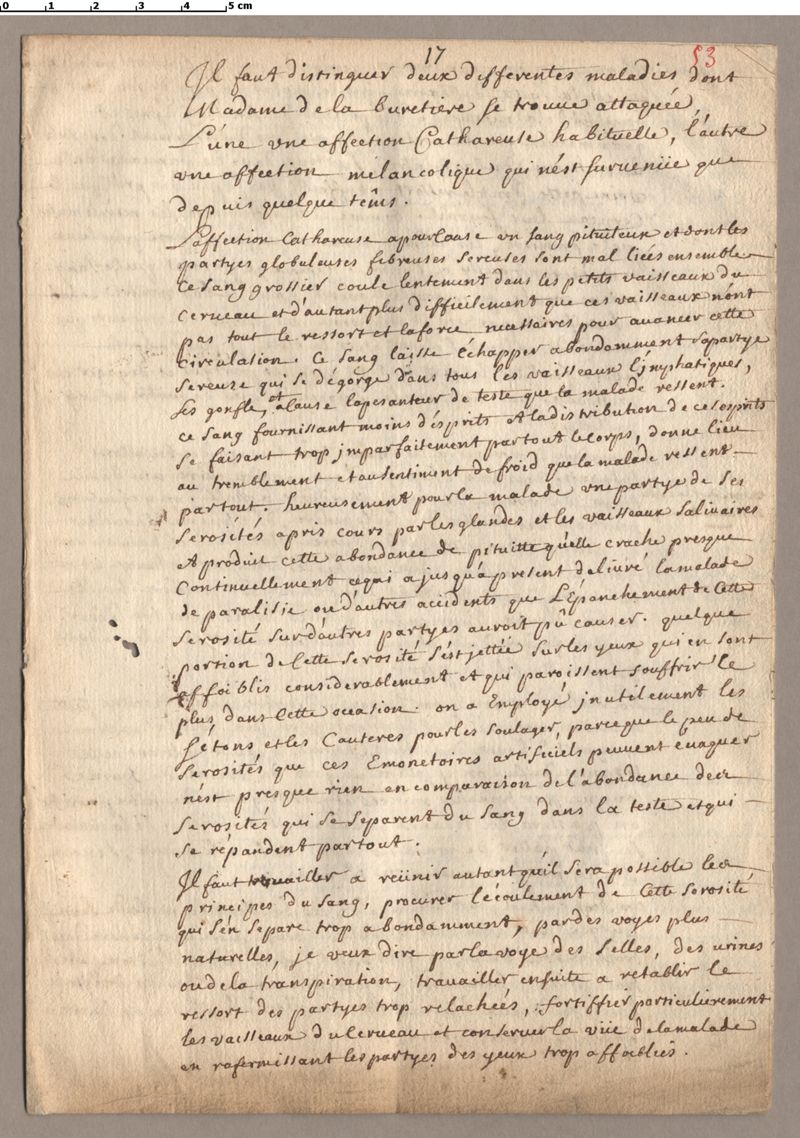 0 1 2 3 4 5 cm
17
53
Il faut distinguer deux differentes maladies dont
Madame de la buretiere se trouue attaquée,
L'úne vne affection Catháreuse habituelle, l'áutre
vne affection mélancolique qui nést suruenüe que
depuis quelque téms.
L'affection Cathareuse a pour Cause un sang pituiteux et dont les
partyes globuleuses fibreuses sereuses sont mal liées ensemble
Ce sang grossier coule lentement dans les petits vaisseaux du
Cerueau et d'autant plus difficilement que ces vaisseaux n'ónt
pas tout le ressort et la force necessaires pour auancer cette
circulation. Ce sang laisse échapper abondamment sa partye
sereuze qui se dégorge dans tous les vaisseaux lymphatiques,
Les gonfle, et Cause la pesanteur de teste que la malade ressent.
ce sang fournissant moins d'ésprits et la distribution de ces esprits
se faisant trop jmparfaitement par tout le corps, donne lieu
au tremblement et au sentiment de froid que la malade ressent
partout. heureusement pour la malade vne partye de ses
serosités a pris cours par les glandes et les vaisseaux saliuaires
et produit cette abondance de pituitte qu'elle crache presque
Continuellement ce qui a jusqu'a present deliuré la malade
de paralisie ou d'autres accidents que L'Épanchement de Cette
serosité sur d'autres partyes auroit pû causer. quelque
portion de Cette serosité s'ést jettée sur les yeux qui en sont
affoiblis considerablement et qui paroissent souffrir le
plus dans Cette occasion. on a Employé jnutilement les
sétons et les Cauteres pour les soulager, parce que le peu de
serosités que ces Emonctoires artificiels peuuent éuaquer
nést presque rien en comparaison de l'abondance des
serosités qui se separent du sang dans la teste et qui
se répandent partout.
Il faut trauailler a reünir autant qu'il sera possible les
principes du sang, procurer l'écoulement de Cette serosité
qui s'én separe trop abondamment, par des voyes plus
naturelles, je veux dire par la voye des selles, des urines
ou de la transpiration, trauailler ensuite a retablir le
ressort des partyes trop relachées, fortiffier particulierement
les vaisseaux du Cerueau et conseruer la vüe de la malade
en rafermissant les partyes des yeux trop affoiblies.